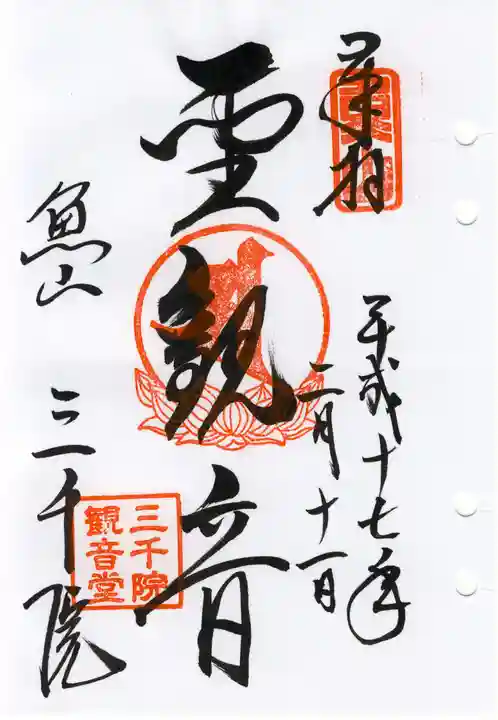 奉拝
平成十七年
二月十一日
聖観音
魚山
三千院
三千院
観音堂